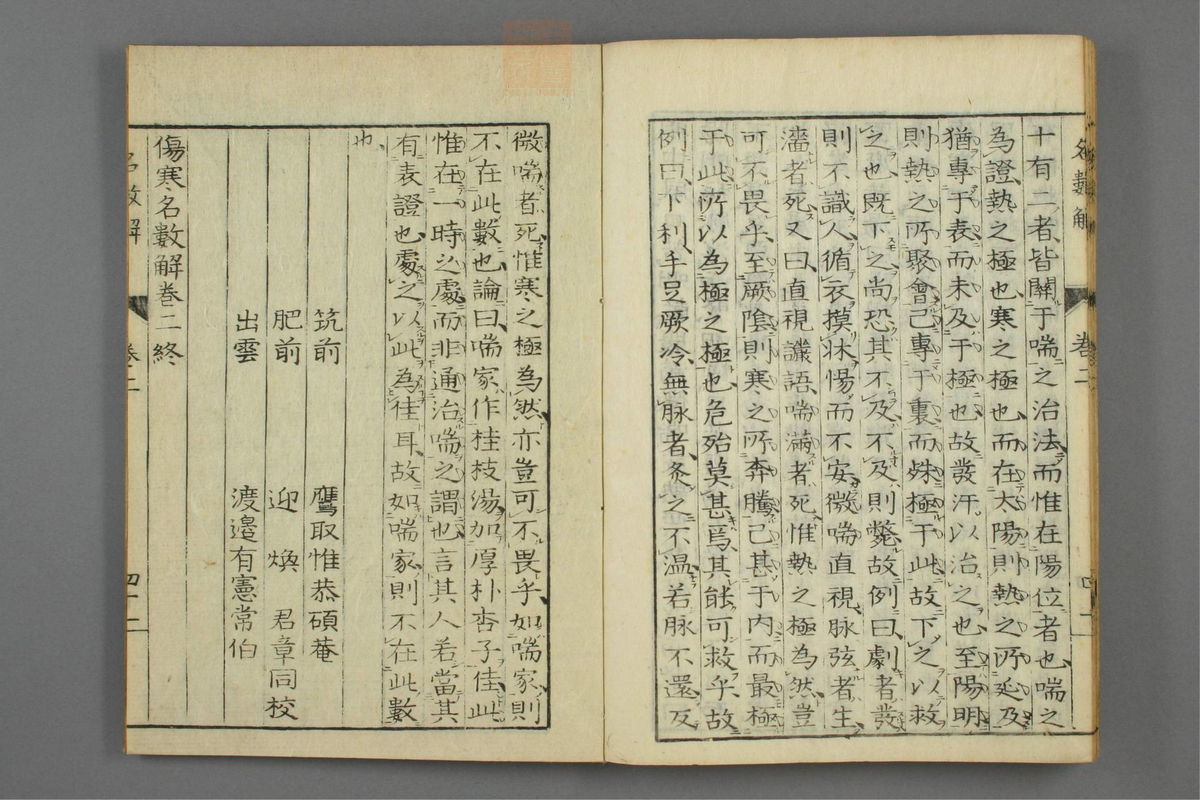 十有二者皆關于喘之治法而惟在陽位者也喘之
為證熱之極也寒之極也而在太陽則熱之所延及
猶專于表而未及于極也故發汗以治之也至陽明
則熱之所聚會已專于裏而殊極于此故下之以救
之也既下之尚恐其不及不及則斃故例曰劇者發
則不識人循衣摸牀惕而不安微喘直視脉弦者生
濇者死又曰直視讝語喘滿者死惟熱之極為然豈
可不畏乎至厥陰則寒之所奔騰已甚于内而最極
于此所以為極之極也危殆莫甚焉其能可救乎故
例曰下利手足厥冷無脉者灸之不温若脉不還反
微喘者死惟寒之極為然亦豈可不畏乎如喘家則
不在此數也論曰喘家作桂枝湯加厚朴杏子佳此
惟在一時之處而非通治喘之謂也言其人若當其
有表證也處之以此為佳耳故如喘家則不在此數
也
筑前 鷹取惟恭碩菴
肥前 迎煥君章同校
出雲 渡邉有憲常伯
傷寒名數解卷二終
名數解 卷二 四十二